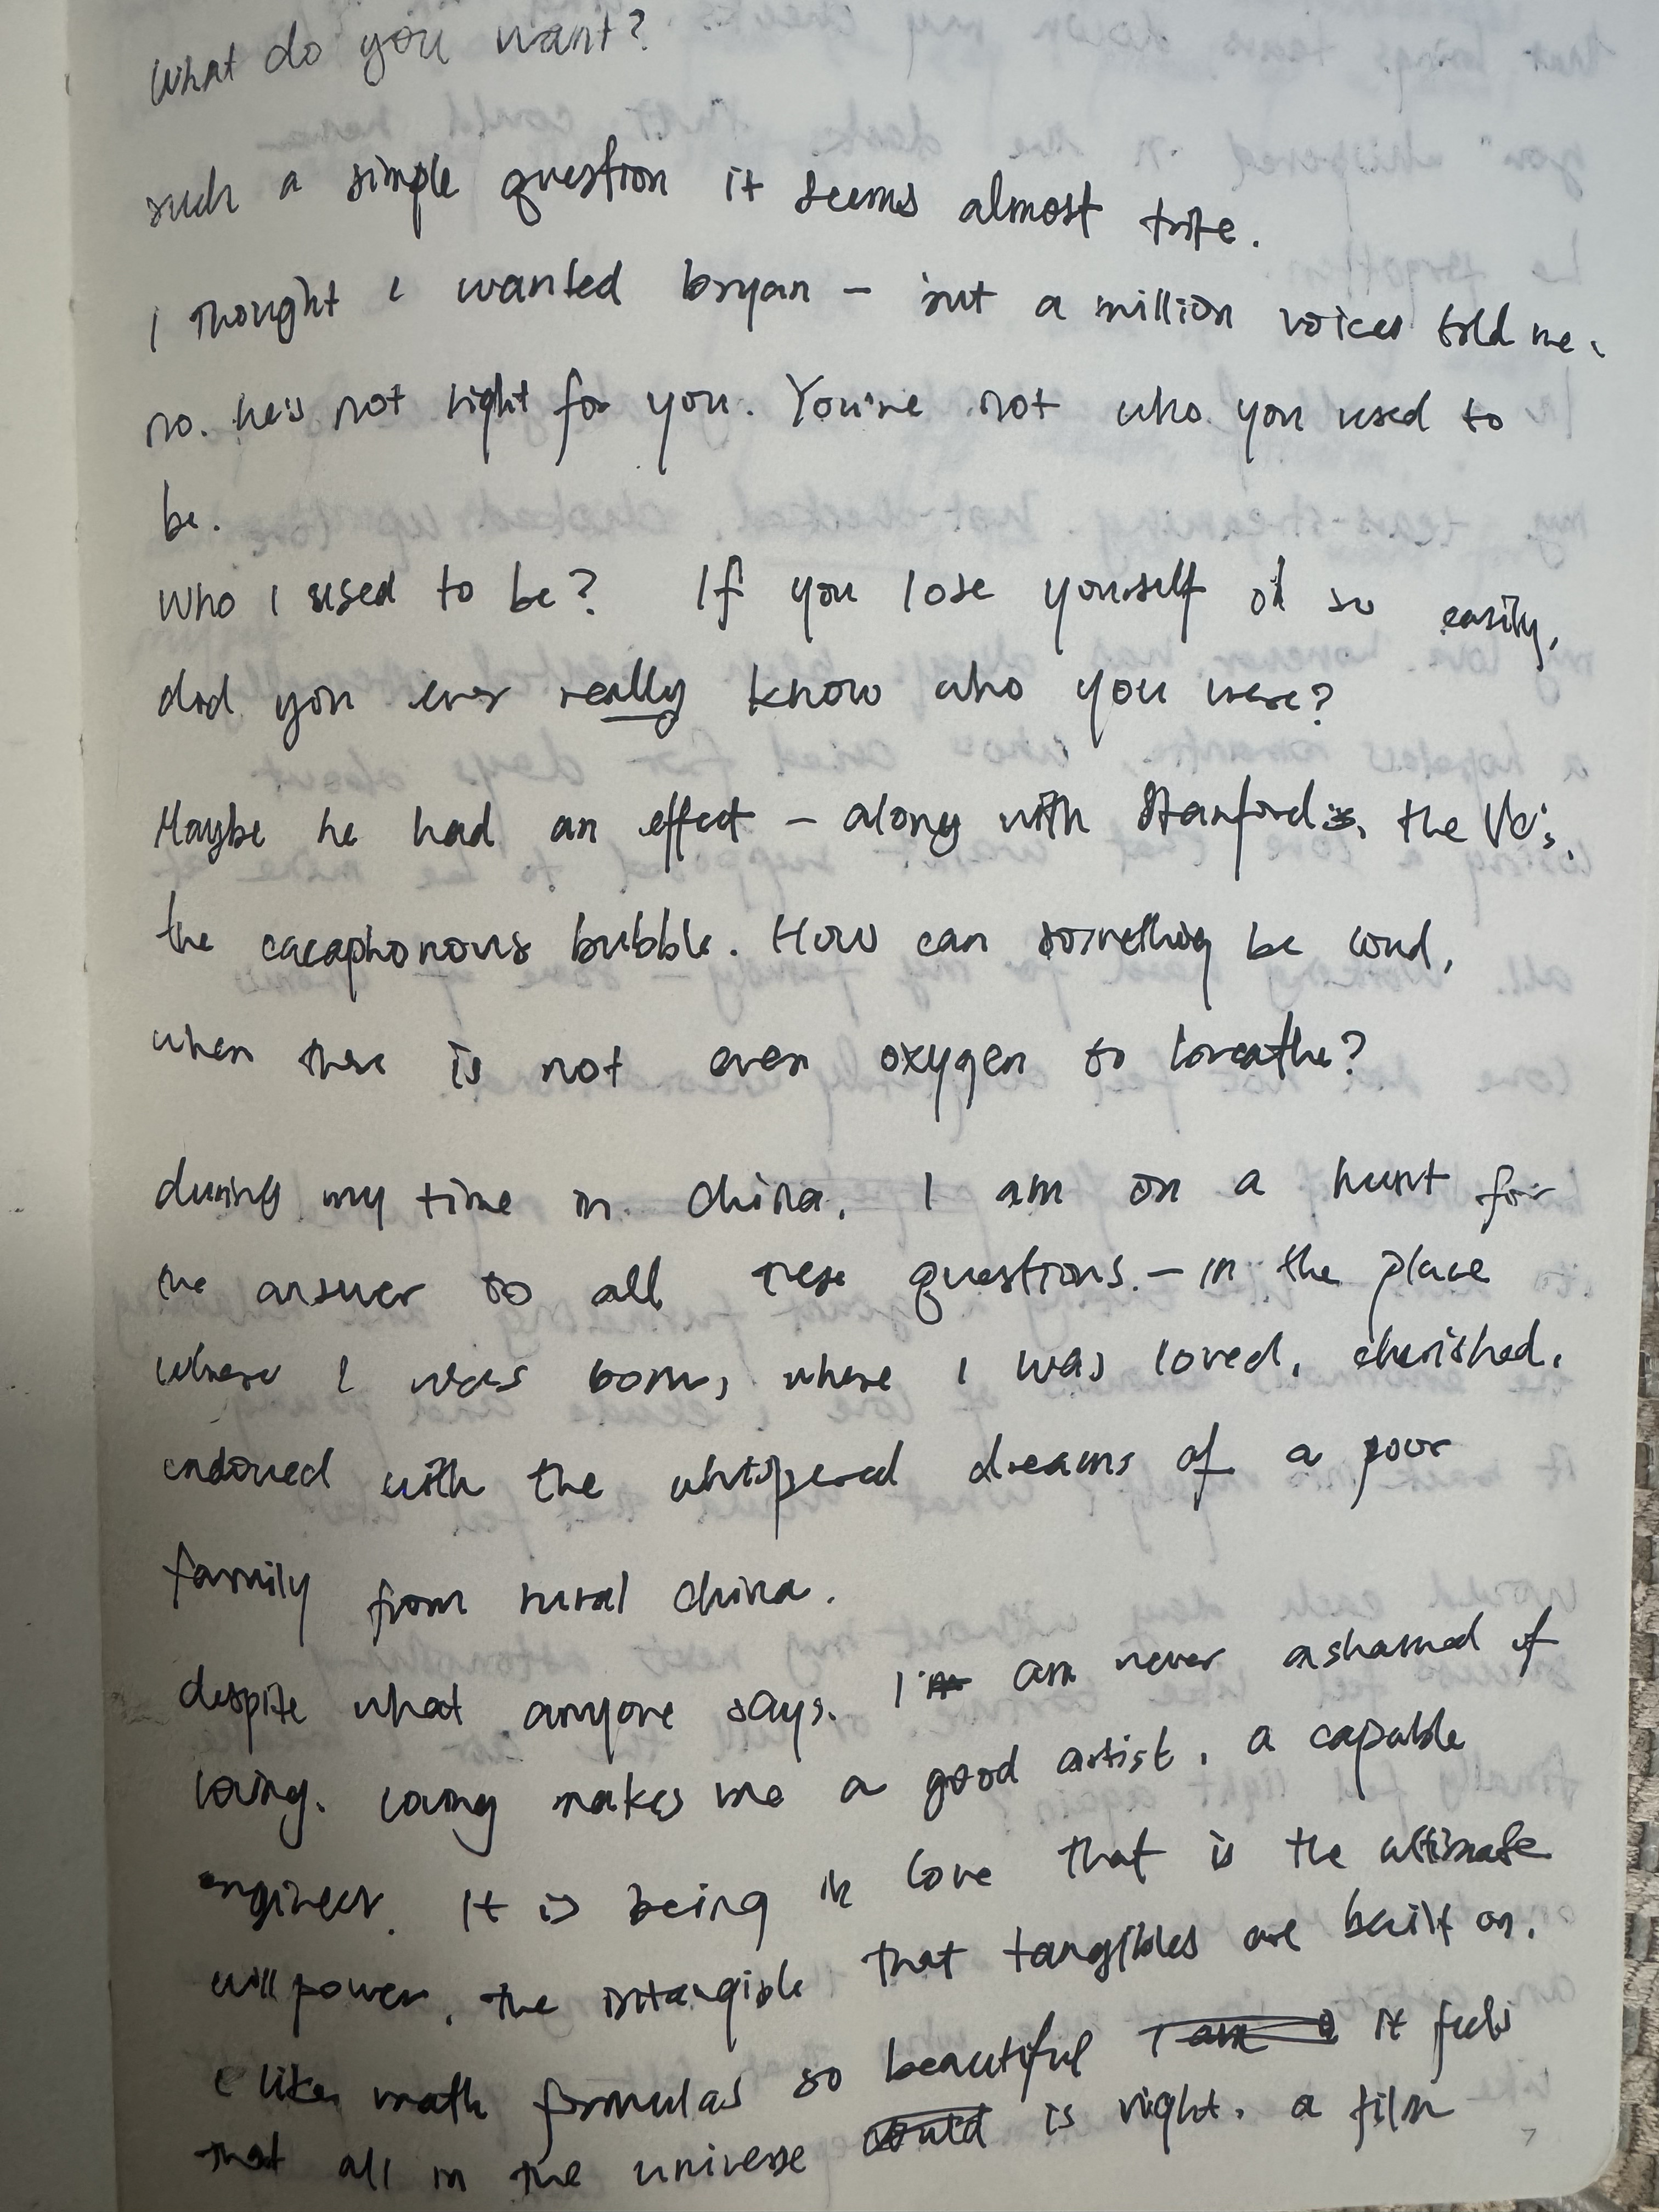 What do you want?
such a simple question it seems almost trite.
I thought I wanted bryan – but a million voices told me,
no. he's not right for you. You're not who you used to
be.
Who I used to be? If you lose yourself so easily,
did you ever really know who you were?
Maybe he had an effect – along with Stanford, the VC's,
the cacaphonous bubble. How can something be loud,
when there is not even oxygen to breathe?
during my time in China, I am on a hunt for
the answer to all these questions – in the place
where I was born, where I was loved, cherished,
endowed with the whispered dreams of a poor
family from rural china.
despite what anyone says, I am never ashamed of
loving. loving makes me a good artist, a capable
engineer. It is being in love that is the ultimate
willpower, the intangible that tangibles are built on,
like math formulas so beautiful it feels
that all in the universe is right. a film